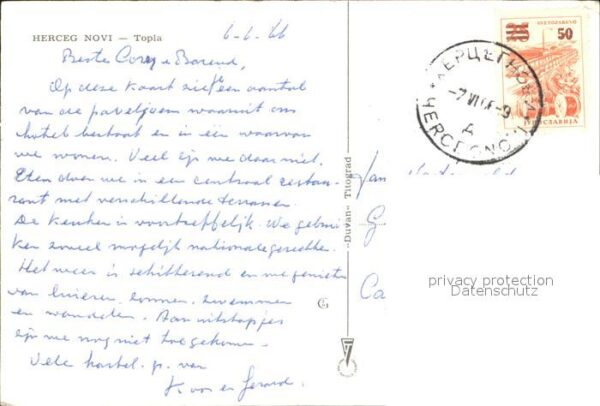 HERCEG NOVI — Topla
6-6-66
Beste Corry en Barend,
Op deze kaart zie je een aantal
van de paveljoens waaruit ons
hotel bestaat en in een waarvan
we wonen. Veel zijn we daar niet.
Eten doen we in een centraal restau-
rant met verschillende terrassen.
De keuken is voortreffelijk. We gebrui-
ken zoveel mogelijk nationale gerechten.
Het weer is schitterend en we genieten
van luieren, zonnen, zwemmen
en wandelen. Aan uitstapjes
zijn we nog niet toegekomen.
Vele hartel. gr. van
Koos en Gerard.
„Duvan“ Titograd
SVETOZAREVO
25 50
JUGOSLAVIJA
ХЕРЦЕГНОВИ
-7 VI 66-9
A
HERCEGNOVI
Fam
G
Ca
privacy protection
Datenschutz